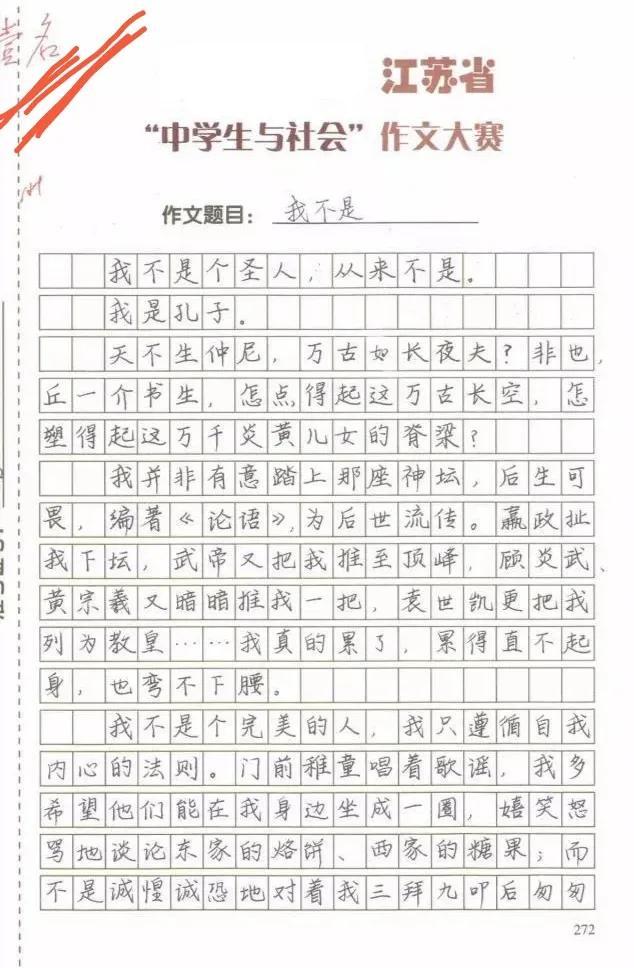 壹名
江苏省
“中学生与社会”作文大赛
作文题目：我不是
我不是个圣人，从来不是。
我是孔子。
天不生仲尼，万古如长夜夫？非也，
丘一介书生，怎点得起这万古长空，怎
塑得起这万千炎黄儿女的脊梁？
我并非有意踏上那座神坛，后生可
畏，编著《论语》，为后世流传。嬴政扯
我下坛，武帝又把我推至顶峰，顾炎武、
黄宗羲又暗暗推我一把，袁世凯更把我
列为教皇……我真的累了，累得直不起
身，也弯不下腰。
我不是个完美的人，我只遵循自我
内心的法则。门前稚童唱着歌谣，我多
希望他们能在我身边坐成一圈，嬉笑怒
骂地谈论东家的烙饼、西家的糖果；而
不是诚惶诚恐地对着我三拜九叩后匆匆
272